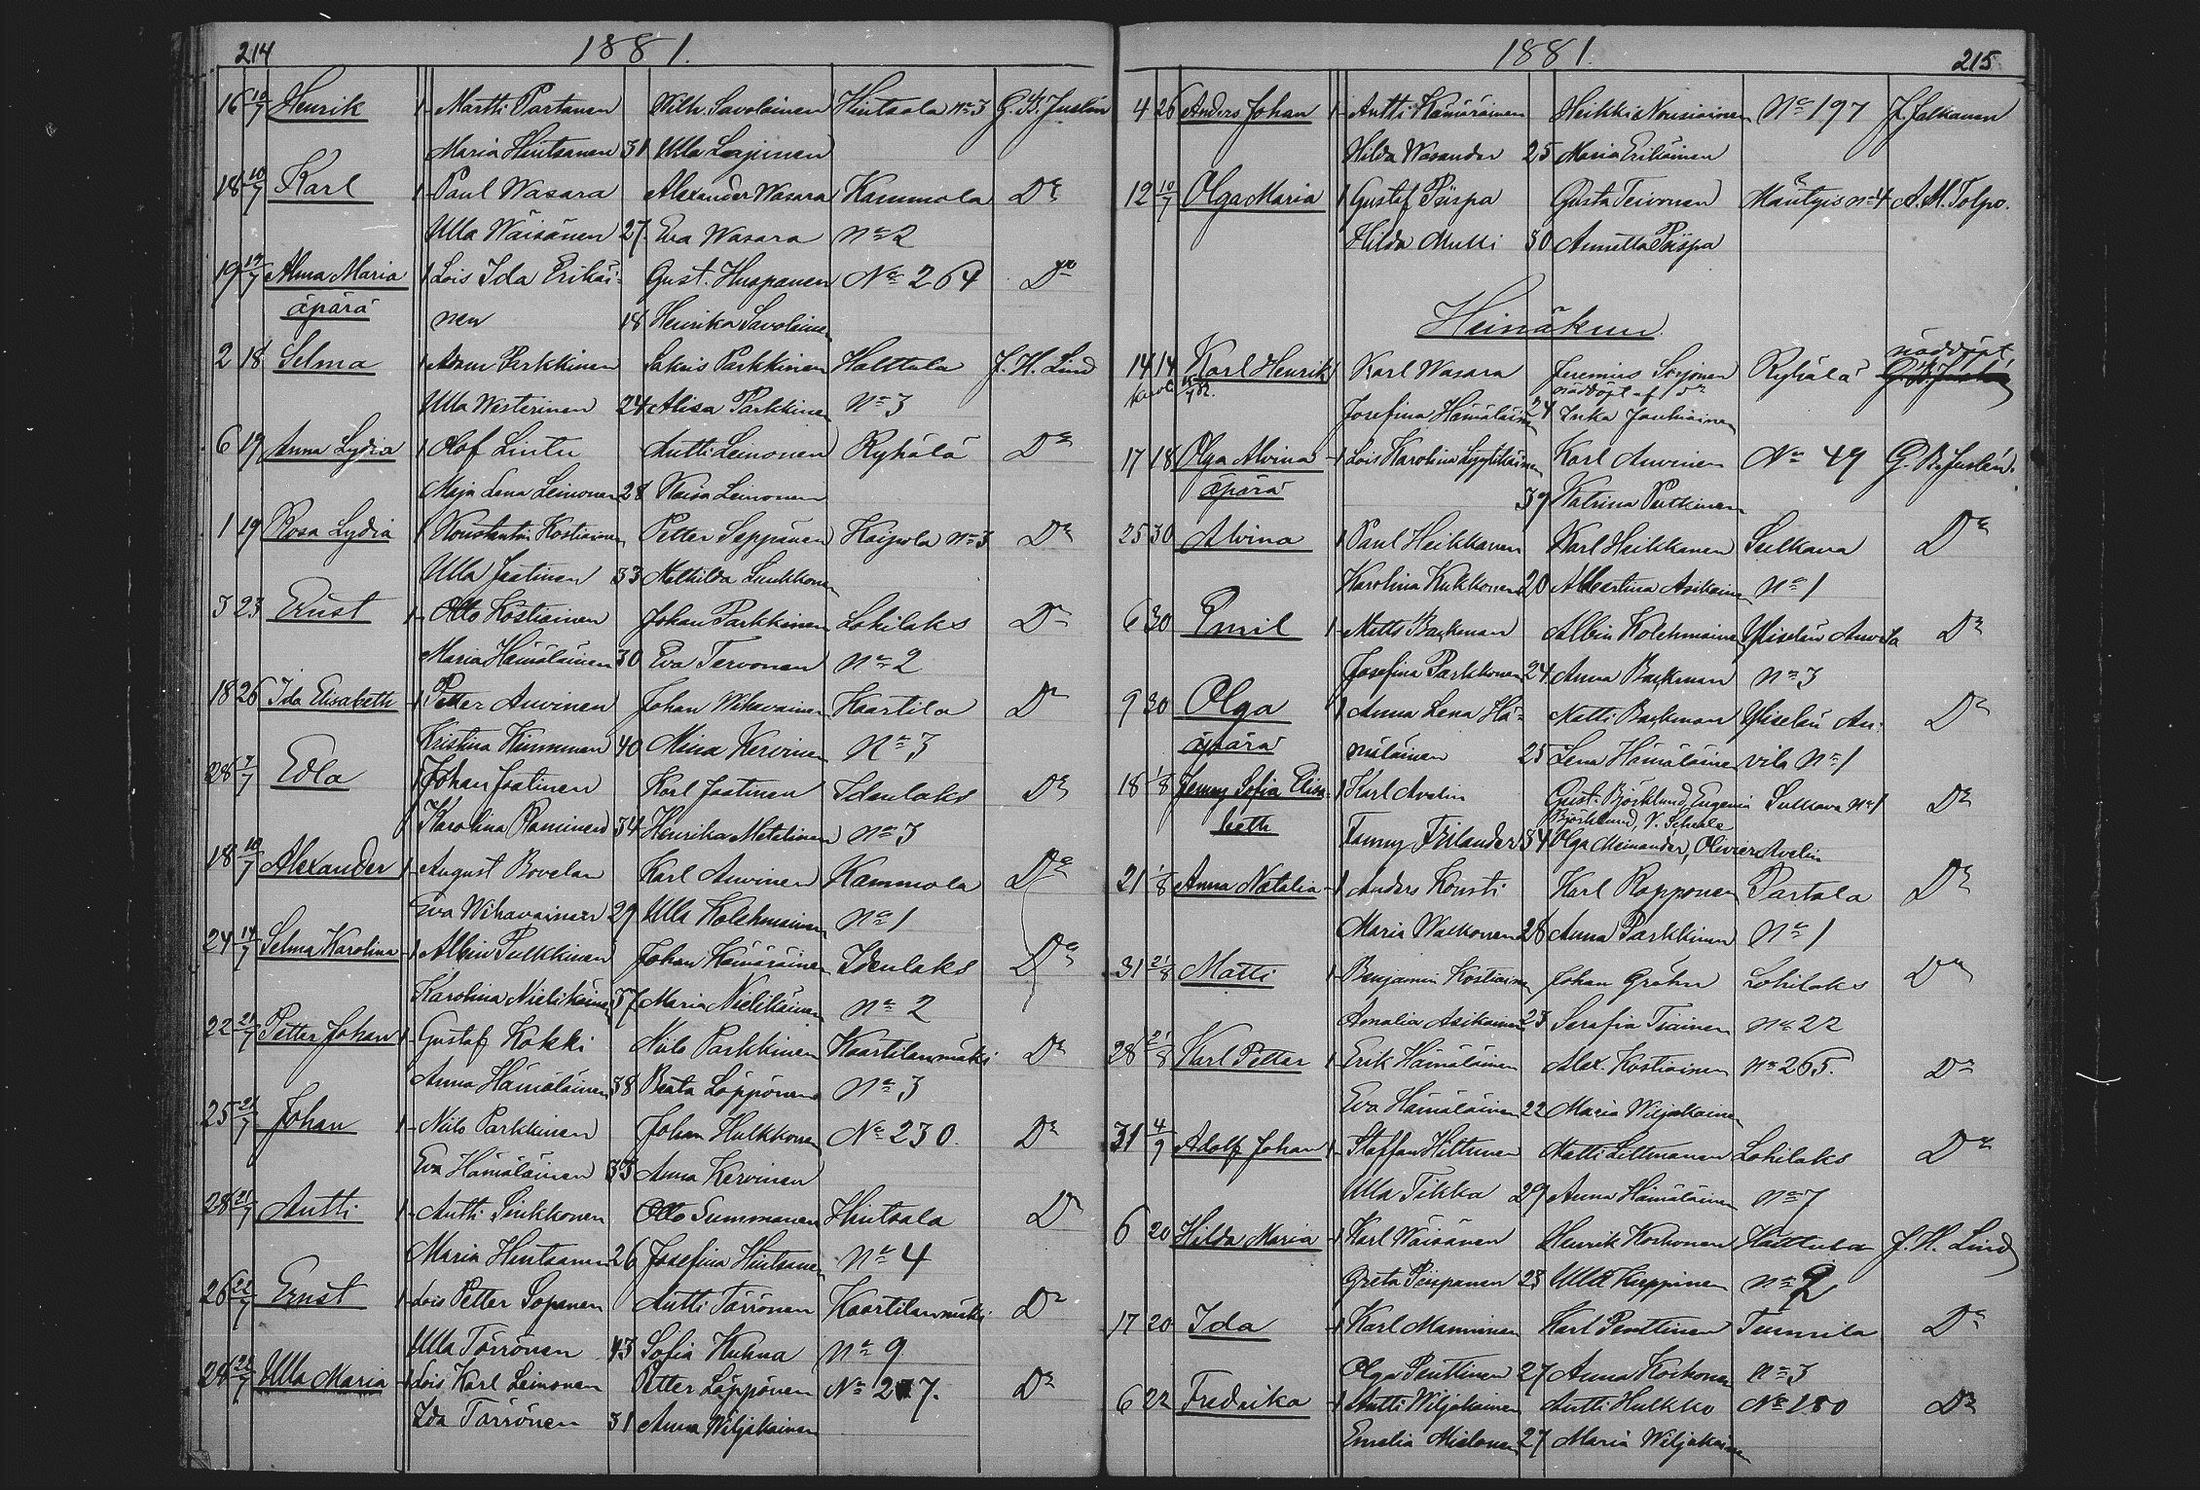 214
1881.
16 10/7 Henrik 1 Martti Partanen Wilh. Savolainen Hintsala No 3 G. B. Juslén
Maria Hintsanen 31 Ulla
18 10/7 Karl 1 Paul Wasara Alexander Wasara Kammola Do
Ulla Wäisänen 27 Eva Wasara No 2
19 /7 Alma Maria 1 Lois Ida Erikäi- Gust. Huupanen No 264 Do
äpärä nen 18 Henrika Savolainen
2 18 Selma 1 Adam Parkkinen Parkkinen Halttula J. H. Lind
Ulla Westerinen 24 Alisa Parkkinen No 3
6 19 Anna Lydia 1 Olof Lintu Antti Leinonen Ryhälä Do
Maja Lena Leinonen 28 Kaisa Leinonen
1 19 Rosa Lydia 1 Konstantin Kostiainen Petter Seppänen Kaipola No 3 Do
Ulla Jaatinen 33 Mathilda Sinkkonen
3 23 Ernst 1 Otto Kostiainen Johan Parkkinen Lohilaks Do
Maria Hämäläinen 30 Eva Tervonen No 2
18 26 Ida Elisabeth 1 Petter Auvinen Johan Wihavainen Kaartila Do
Kristina Kinnunen 40 Mina Kervinen No 3
28 /7 Edla 1 Johan Jaatinen Karl Jaatinen Idenlaks Do
Karolina Raminen 34 Henrika No 3
18 10/7 Alexander 1 August Bovelan Karl Auvinen Kammola Do
Eva Wihavainen 29 Ulla Kolehmainen No 1
24 /7 Selma Karolina 1 Albin Pulkkinen Johan Kämäräinen Idenlaks Do
Karolina Nielikäinen 37 Maria Nielikäinen No 2
22 21/7 Petter Johan 1 Gustaf Kokki Niilo Parkkinen Kaartilanmäki Do
Anna Hämäläinen 38 Beata Löppönen No 3
25 21/7 Johan 1 Niilo Parkkinen Johan Hulkkonen No 230. Do
Eva Hämäläinen 33 Anna Kervinen
28 21/7 Antti 1 Antti Sinkkonen Otto Summanen Hintsala Do
Maria Hintsanen 26 Josefina Hintsanen No 4
26 22/7 Ernst 1 Lois Petter Sopanen Antti Törrönen Kaartilanmäki Do
Ulla Törrönen 43 Sofia Kuhna No 9
28 /7 Ulla Maria 1 Lois Karl Leinonen Petter Löppönen No 7. Do
Ida Törrönen 31 Anna Wiljakainen
1881.
215
4 26 Anders Johan 1 Antti Kämäräinen Heikki Nousiainen No 197 J. Jalkanen
Hilda Wasander 25 Maria Erikäinen
12 10/7 Olga Maria 1 Gustaf Piispa Gusta Teivonen Mäntyis No 4 A. M. Tolpo.
Hilda Mutti 30 Annulla Piispa
Heinäkuu.
nöddöpt
14 14 Karl Henrik 1 Karl Wasara Jeremias Sorjonen Ryhälä G. B. Juslén
nöddöpt af Do
Josefina Hämäläinen 24 Inka Jauhiainen
17 18 Olga Alvina 1 Lois Karolina Lyytikäinen Karl Auvinen No 49 G. B. Juslén.
äpärä 39 Katrina Putkinen
25 30 Alvina 1 Paul Heikkanen Karl Heikkanen Sulkava Do
Karolina Kukkonen 20 Albertina Asikainen No 1
6 30 Emil 1 Matts Backman Albin Kolehmainen Do
Josefina Parkkonen 24 Anna Backman No 3
9 30 Olga 1 Anna Lena Hä- Matti Backman Do
äpärä mäläinen 25 Lena Hämäläinen vila No 1
18 1/8 Jenny Sofia Elisa- 1 Karl Avelin Gust. Björklund, Eugenia Sulkava No 1 Do
Björklund, V. Scheele
beth Fanny Frilander 34 Olga Meinander, Olivier Avelin
21 1/8 Anna Natalia 1 Anders Konsti Karl Rapponen Partala Do
Maria Walkonen 26 Anna Parkkinen No 1
31 21/8 Matti 1 Benjamin Kostiainen Johan Gröhn Lohilaks Do
Amalia Asikainen 23 Serafia Tiainen No 22
28 21/8 Karl Petter 1 Erik Hämäläinen Alex. Kostiainen No 265. Do
Eva Hämäläinen 22 Maria Wiljakainen
31 4/9 Adolf Johan 1 Staffan Hiltunen Matti Littmanen Lohilaks Do
Ulla Tikka 29 Anna Hämäläinen No 7
6 20 Hilda Maria 1 Karl Wäisänen Henrik Korhonen Halttula J. H. Lind
Greta Piispanen 23 Ulla Kuppinen No 2
17 20 Ida 1 Karl Manninen Karl Penttinen Tunnila Do
Olga Penttinen 27 Anna Korhonen No 3
6 22 Fredrika 1 Antti Wiljakainen Antti Hulkko No 180 Do
Emelia Mielonen 27 Maria Wiljakainen